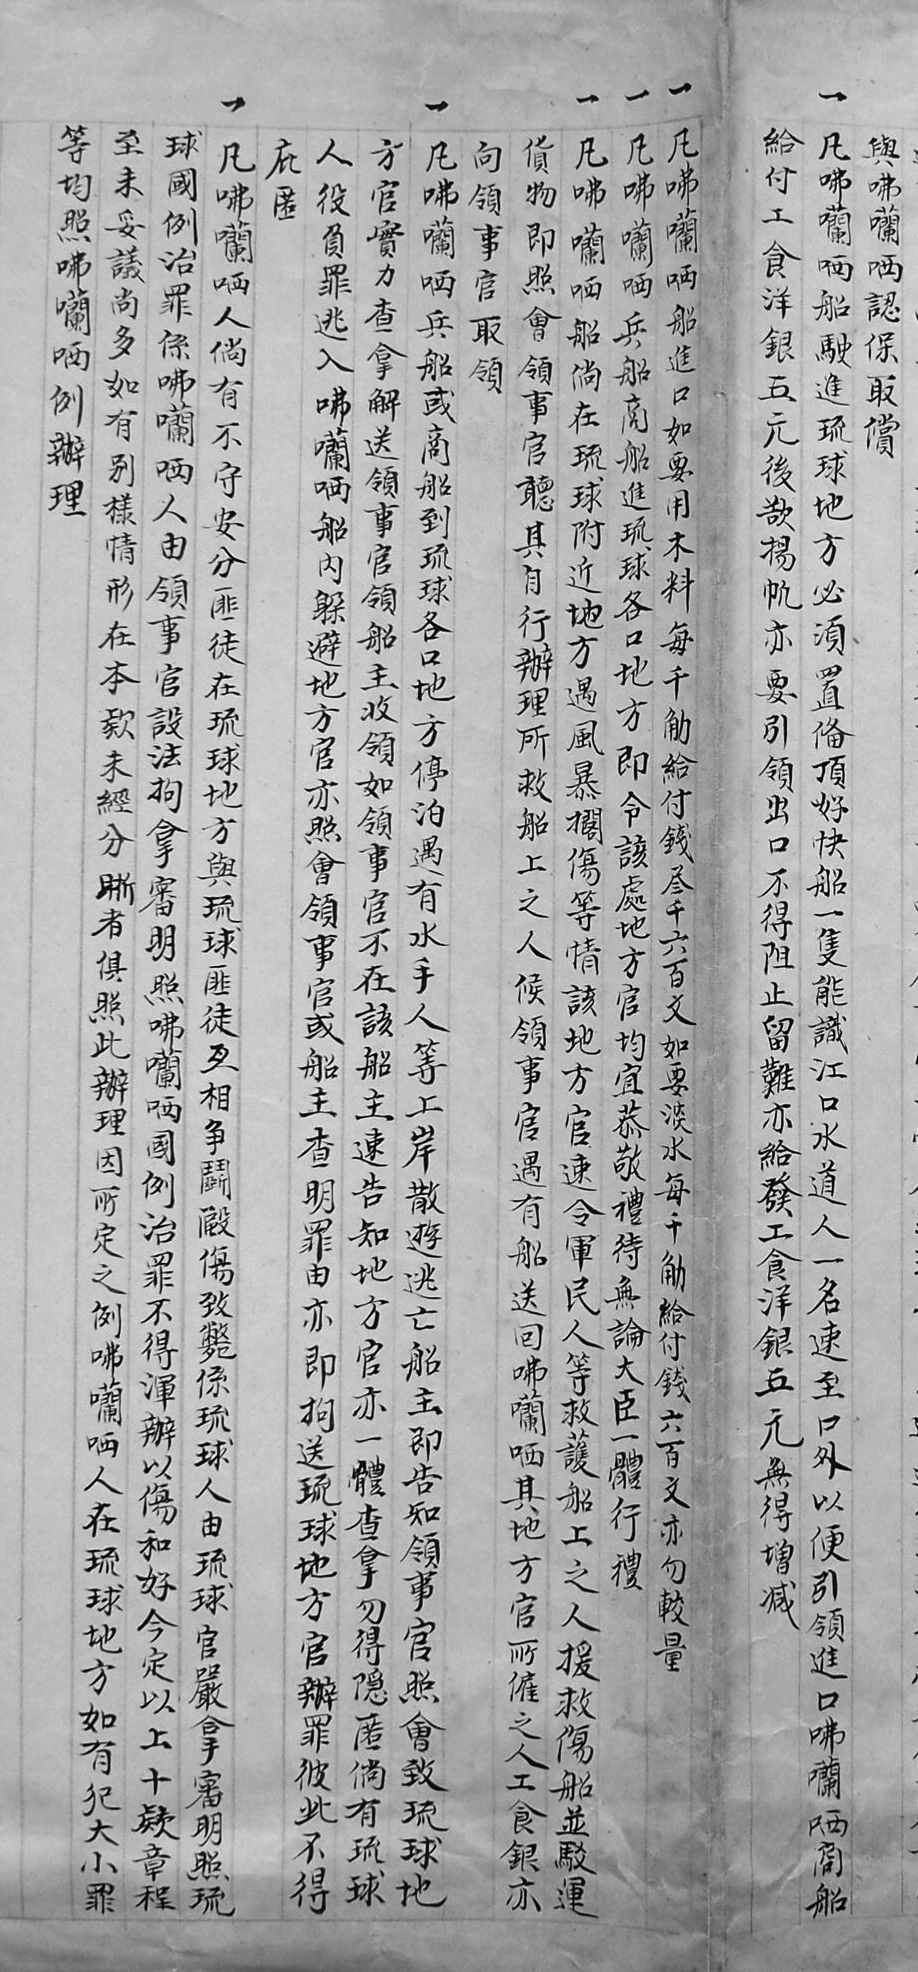 與咈囒哂認保取償
一 凡咈囒哂船駛進琉球地方必須置俻頂好快船一隻能識江口水道人一名速至口外以便引領進口咈囒哂商船
給付工食洋銀五元後欲揚帆亦要引領出口不得阻止留難亦給發工食洋銀五元無得增减
一 凡咈囒哂船進口如要用木料每千觔給付錢叁千六百文如要淡水每千觔給付錢六百文亦勿較量
一 凡咈囒哂兵船商船進琉球各口地方即令該處地方官均宜恭敬禮待無論大臣一體行禮
一 凡咈囒哂船倘在琉球附近地方遇風暴擱傷等情該地方官速令軍民人等救護船上之人援救傷船並駁運
貨物即照會領事官聽其自行辦理所救船上之人候領事官遇有船送回咈囒哂其地方官所僱之人工食銀亦
向領事官取領
一 凡咈囒哂兵船或商船到琉球各口地方停泊遇有水手人等上岸散遊逃亡船主即告知領事官照會致琉球地
方官實力查拿解送領事官領船主收領如領事官不在該船主速告知地方官亦一體查拿勿得隐匿倘有琉球
人役負罪逃入咈囒哂船内躲避地方官亦照會領事官或船主查明罪由亦即拘送琉球地方官辦罪彼此不得
庇匿
一 凡咈囒哂人倘有不守安分匪徒在琉球地方與琉球匪徒互相争鬪毆傷致斃係琉球人由琉球官嚴拿審明照琉
球國例治罪係咈囒哂人由領事官設法拘拿審明照咈囒哂國例治罪不得渾辦以傷和好今定以上十欵章程
至未妥議尚多如有别樣情形在本欵未經分晰者俱照此辦理因所定之例咈囒哂人在琉球地方如有犯大小罪
等均照咈囒哂例辦理